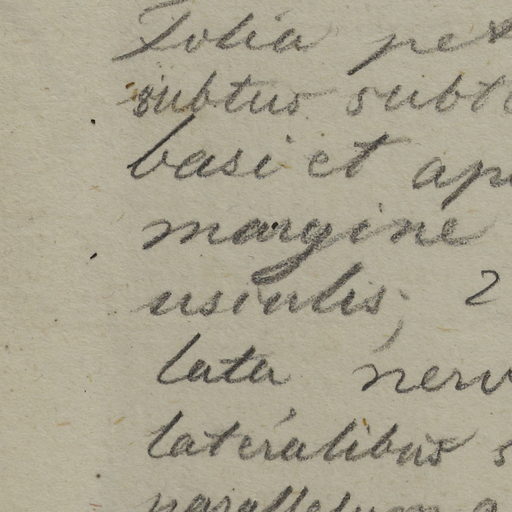 Folia pe
subtus subt
basi et ap
margine
usiulis; 2
lata, nerv
lateralibus s